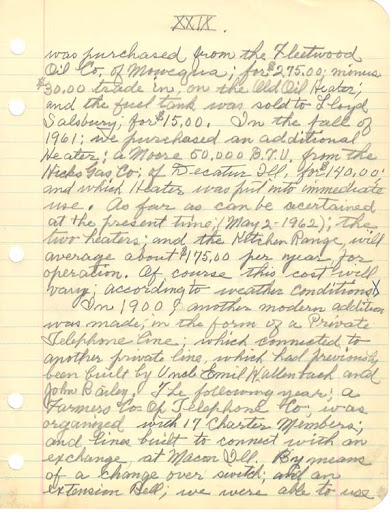 XXIX.
was purchased from the Fleetwood
Oil Co. of Mowequa; for $275.00; minus
$30.00 trade in; on the Old Oil Heater;
and the fuel tank was sold to Lloyd
Salsbury; for $15.00. In the fall of
1961; we purchased an additional
Heater; a Moore 50,000 B.T.U. from the
Hicks Gas Co; of Decatur Ill. for $190.00;
and which Heater was put into immediate
use. As far as can be acertained
at the present time; (May 2-1962); the
two heaters; and the Kitchen Range, will
average about $175.00 per year for
operation. Of course this cost will
vary; according to weather conditions
In 1900 another modern addition
was made; in the form of a Private
Telephone line; which connected to
another private line, which had previously
been built by Uncle Emil Wallenbach and
John Bailey. The following year; a
Farmers Co Op Telephone Co; was
organized with 17 Charter Members;
and lines built to connect with an
exchange at Macon Ill. By means
of a change over switch; and an
extension Bell; we were able to use